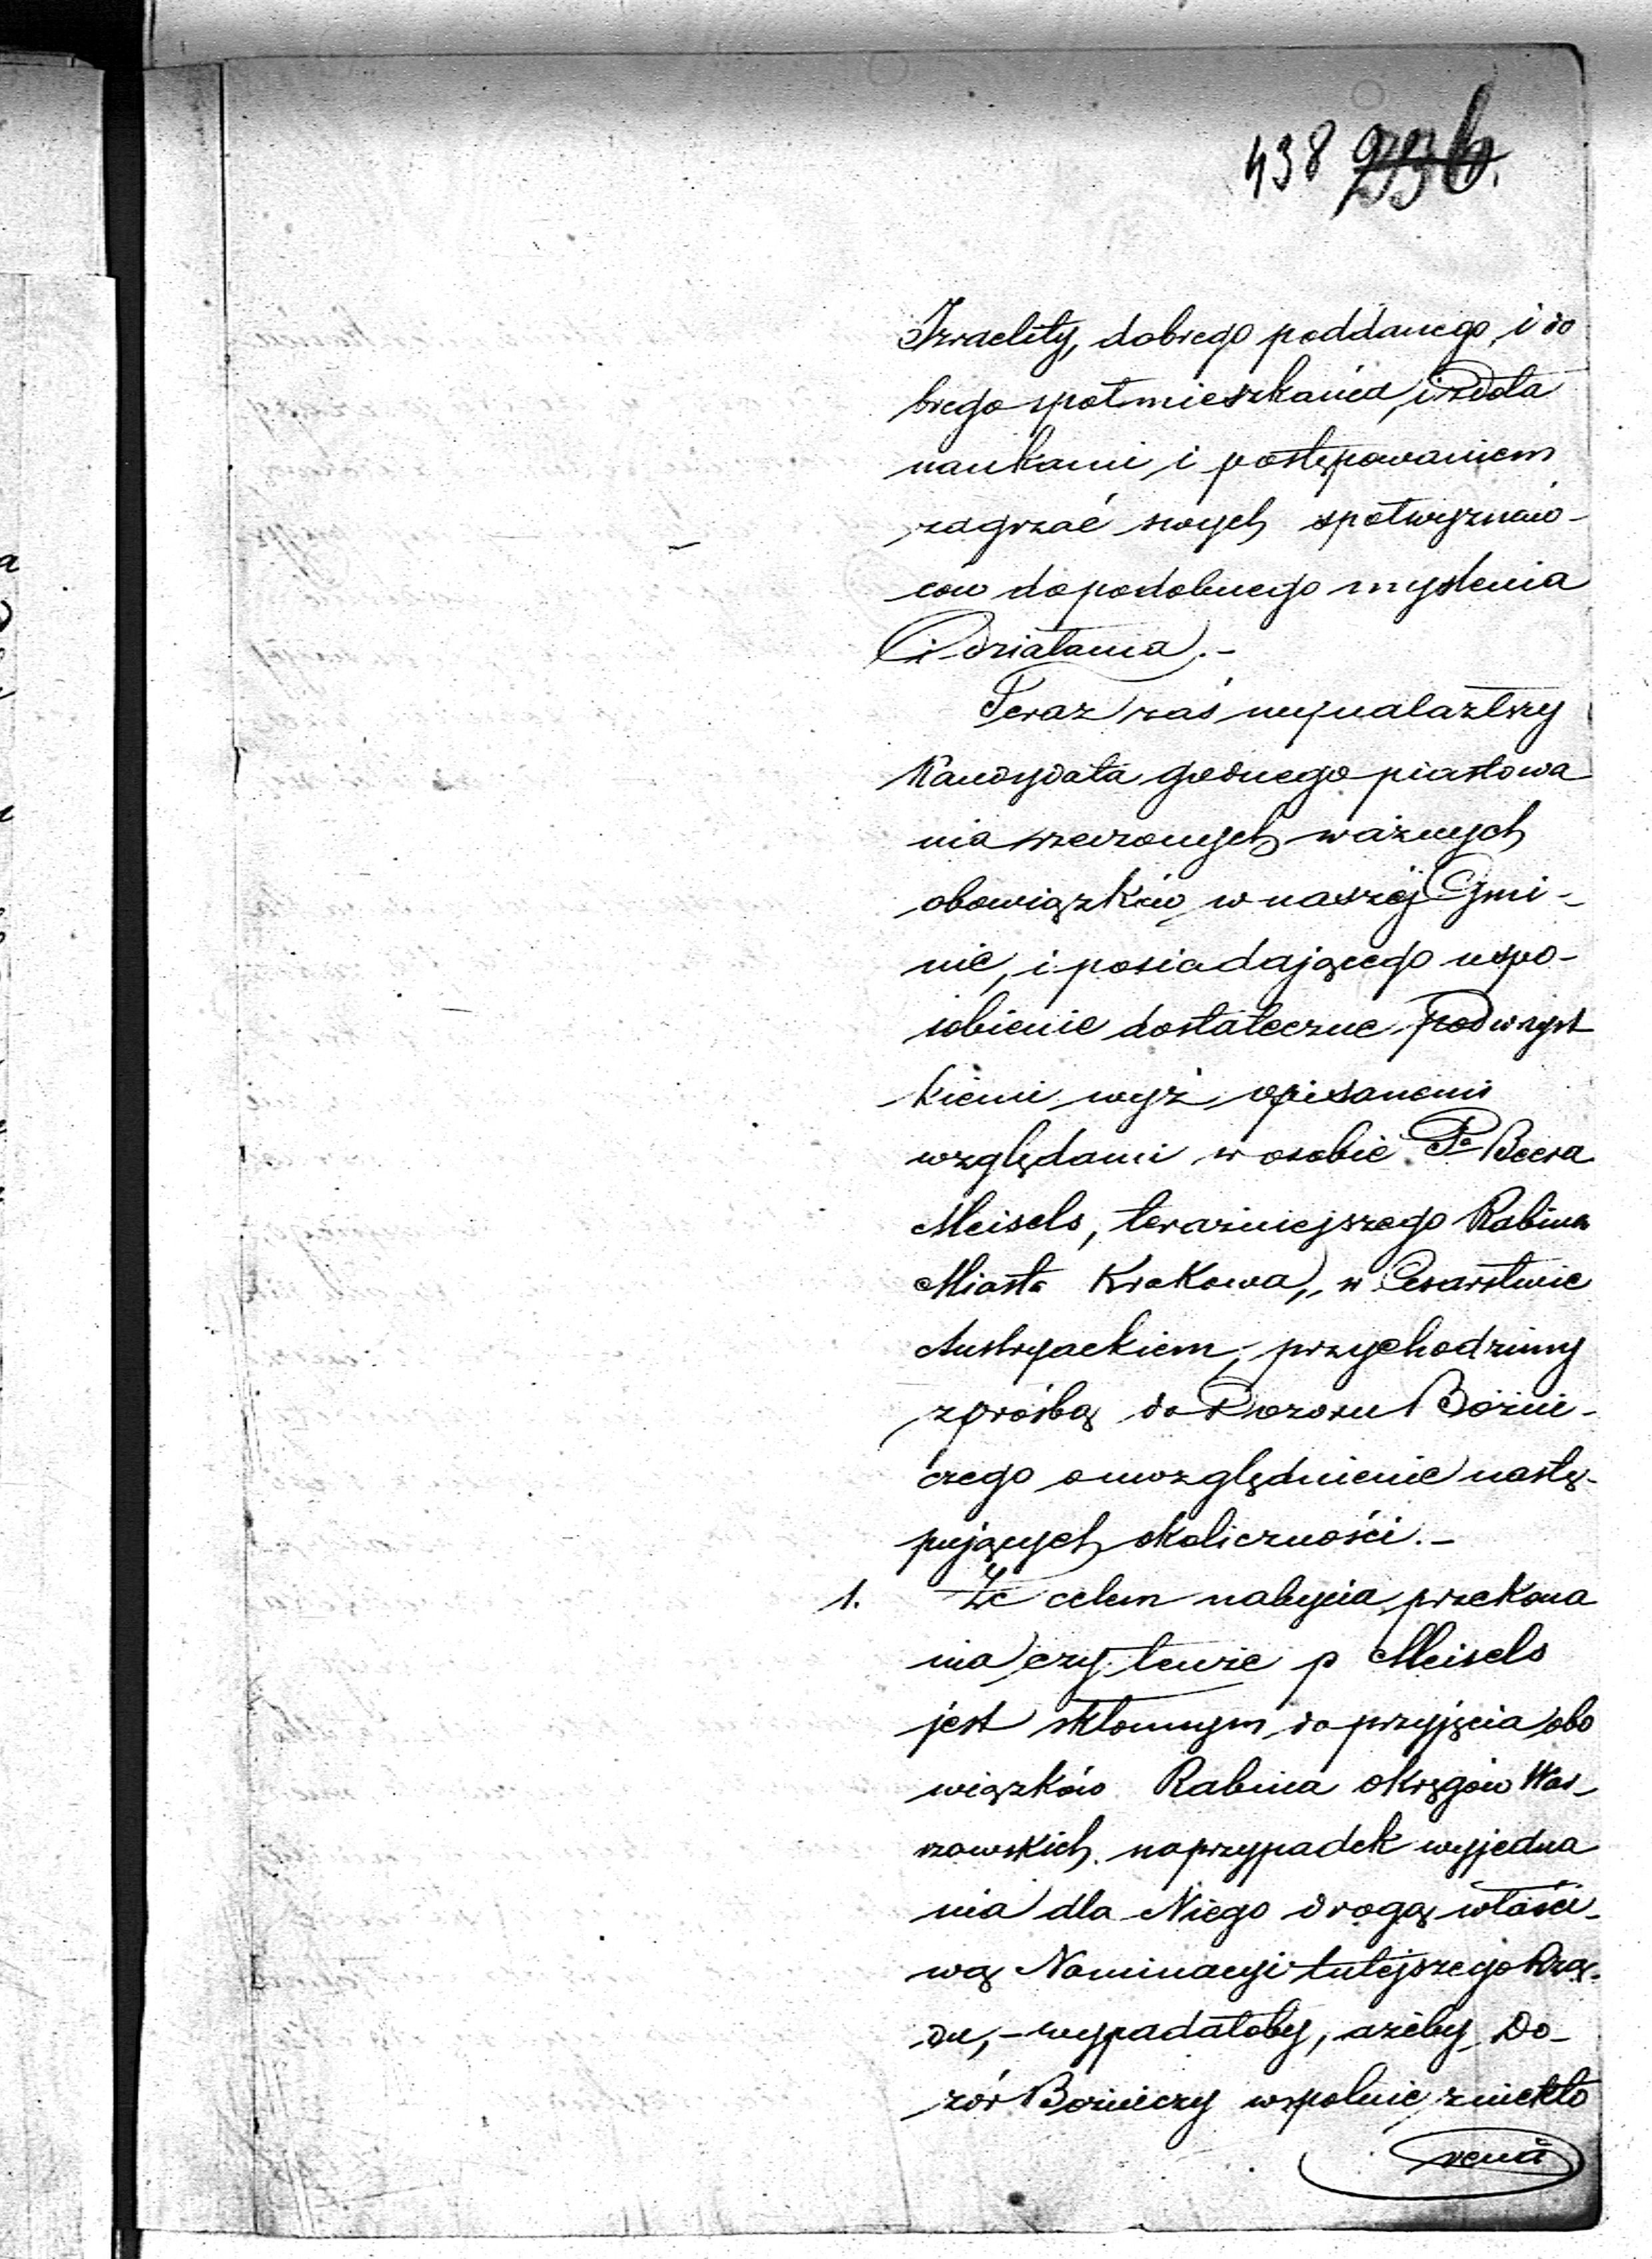 438
Izraelity, dobrego poddanego, i do
brego społmieszkańca, i zdoła
naukami i postępowaniem
zagrzać swych społwyznaw-
ców do podobnego myślenia
i działania.-
Teraz zaś wynalazłszy
Kandydata godnego piastowa
nia rzeczonych ważnych
obowiązków w naszéj Gmi-
nie, i posiadającego uspo-
sobienie dostateczne pod wszyst
kiemi wyż opisanemi
względami w osobie Pa Beera
Meisels, teraźniejszego Rabina
Miasta Krakowa, w Cesarstwie
Austryackiem, przychodzimy
z prośbą do Dozoru Bożni-
czego o uwzględnienie nastę-
pujących okoliczności.-
1. Że celem nabycia przekona
nia czy tenże p Meisels
jest skłonnym do przyjęcia obo
wiązków Rabina okręgów War-
szawskich naprzypadek wyjedna
nia dla Niego drogą właści-
wą Nominacyi tutejszego Rzą-
du,- wypadałoby, ażeby Do-
zór Bożniczy wspolnie z niektó
remi